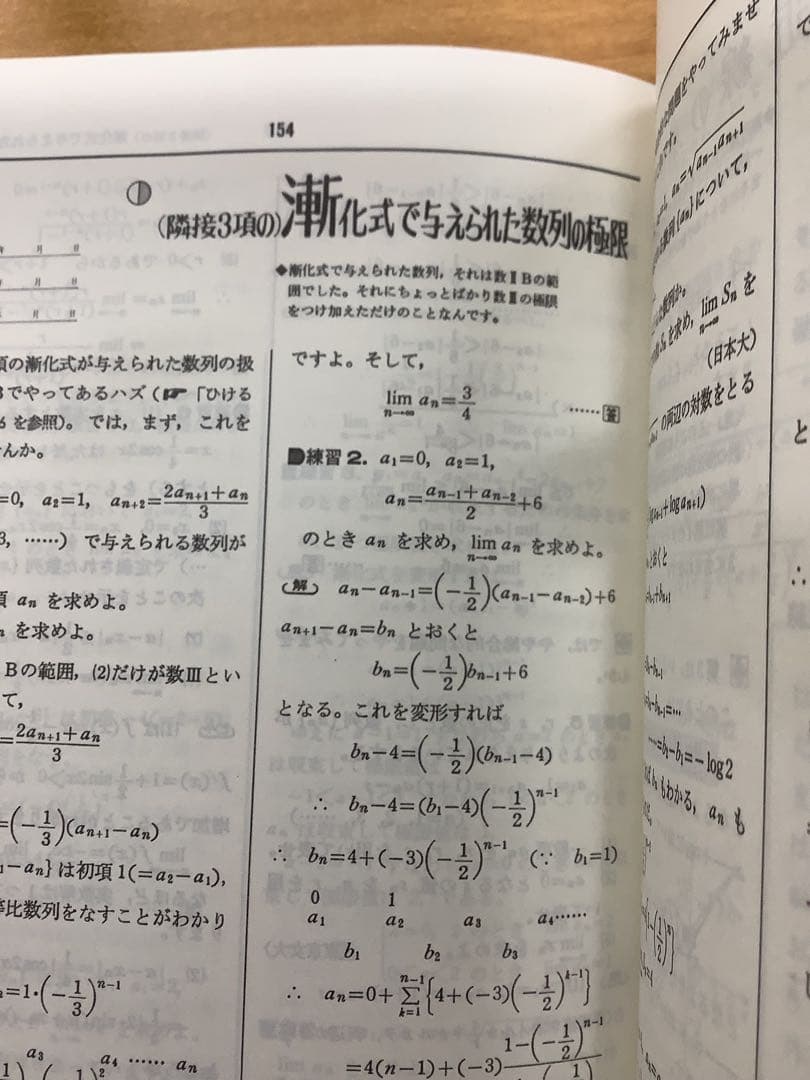 154
(隣接3項の)漸化式で与えられた数列の極限
◆漸化式で与えられた数列，それは数ⅡBの範
囲でした。それにちょっとばかり数Ⅲの極限
をつけ加えただけのことなんです。
月 日
月 日
月 日
項の漸化式が与えられた数列の扱
Bでやってあるハズ(☞「ひける
6を参照)。では，まず，これを
んか。
=0, a₂=1, aₙ₊₂=(2aₙ₊₁+aₙ)/3
3, ……) で与えられる数列が
項 aₙ を求めよ。
を求めよ。
Bの範囲，(2)だけが数Ⅲとい
て，
=(2aₙ₊₁+aₙ)/3
=(-1/3)(aₙ₊₁-aₙ)
₁-aₙ}は初項 1(=a₂-a₁),
等比数列をなすことがわかり
=1·(-1/3)ⁿ⁻¹
a₃ a₄ …… aₙ
ですよ。そして，
lim aₙ=3/4 ……答
n→∞
練習2. a₁=0, a₂=1,
aₙ=(aₙ₋₁+aₙ₋₂)/2+6
のとき aₙ を求め，lim aₙ を求めよ。
n→∞
解 aₙ-aₙ₋₁=(-1/2)(aₙ₋₁-aₙ₋₂)+6
aₙ₊₁-aₙ=bₙ とおくと
bₙ=(-1/2)bₙ₋₁+6
となる。これを変形すれば
bₙ-4=(-1/2)(bₙ₋₁-4)
∴ bₙ-4=(b₁-4)(-1/2)ⁿ⁻¹
∴ bₙ=4+(-3)(-1/2)ⁿ⁻¹ (∵ b₁=1)
0 1
a₁ a₂ a₃ a₄……
b₁ b₂ b₃
∴ aₙ=0+Σ[k=1, n-1]{4+(-3)(-1/2)ᵏ⁻¹}
=4(n-1)+(-3)(1-(-1/2)ⁿ⁻¹)/
問題をやってみませ
です。
aₙ=√(aₙ₋₁aₙ₊₁)
数列{aₙ}について，
数列か。
を求め，lim Sₙ を
n→∞
(日本大)
の両辺の対数をとる
+log aₙ₊₁)
とおくと
=……
……=b₁-b₁=-log2
もわかる，aₙ も